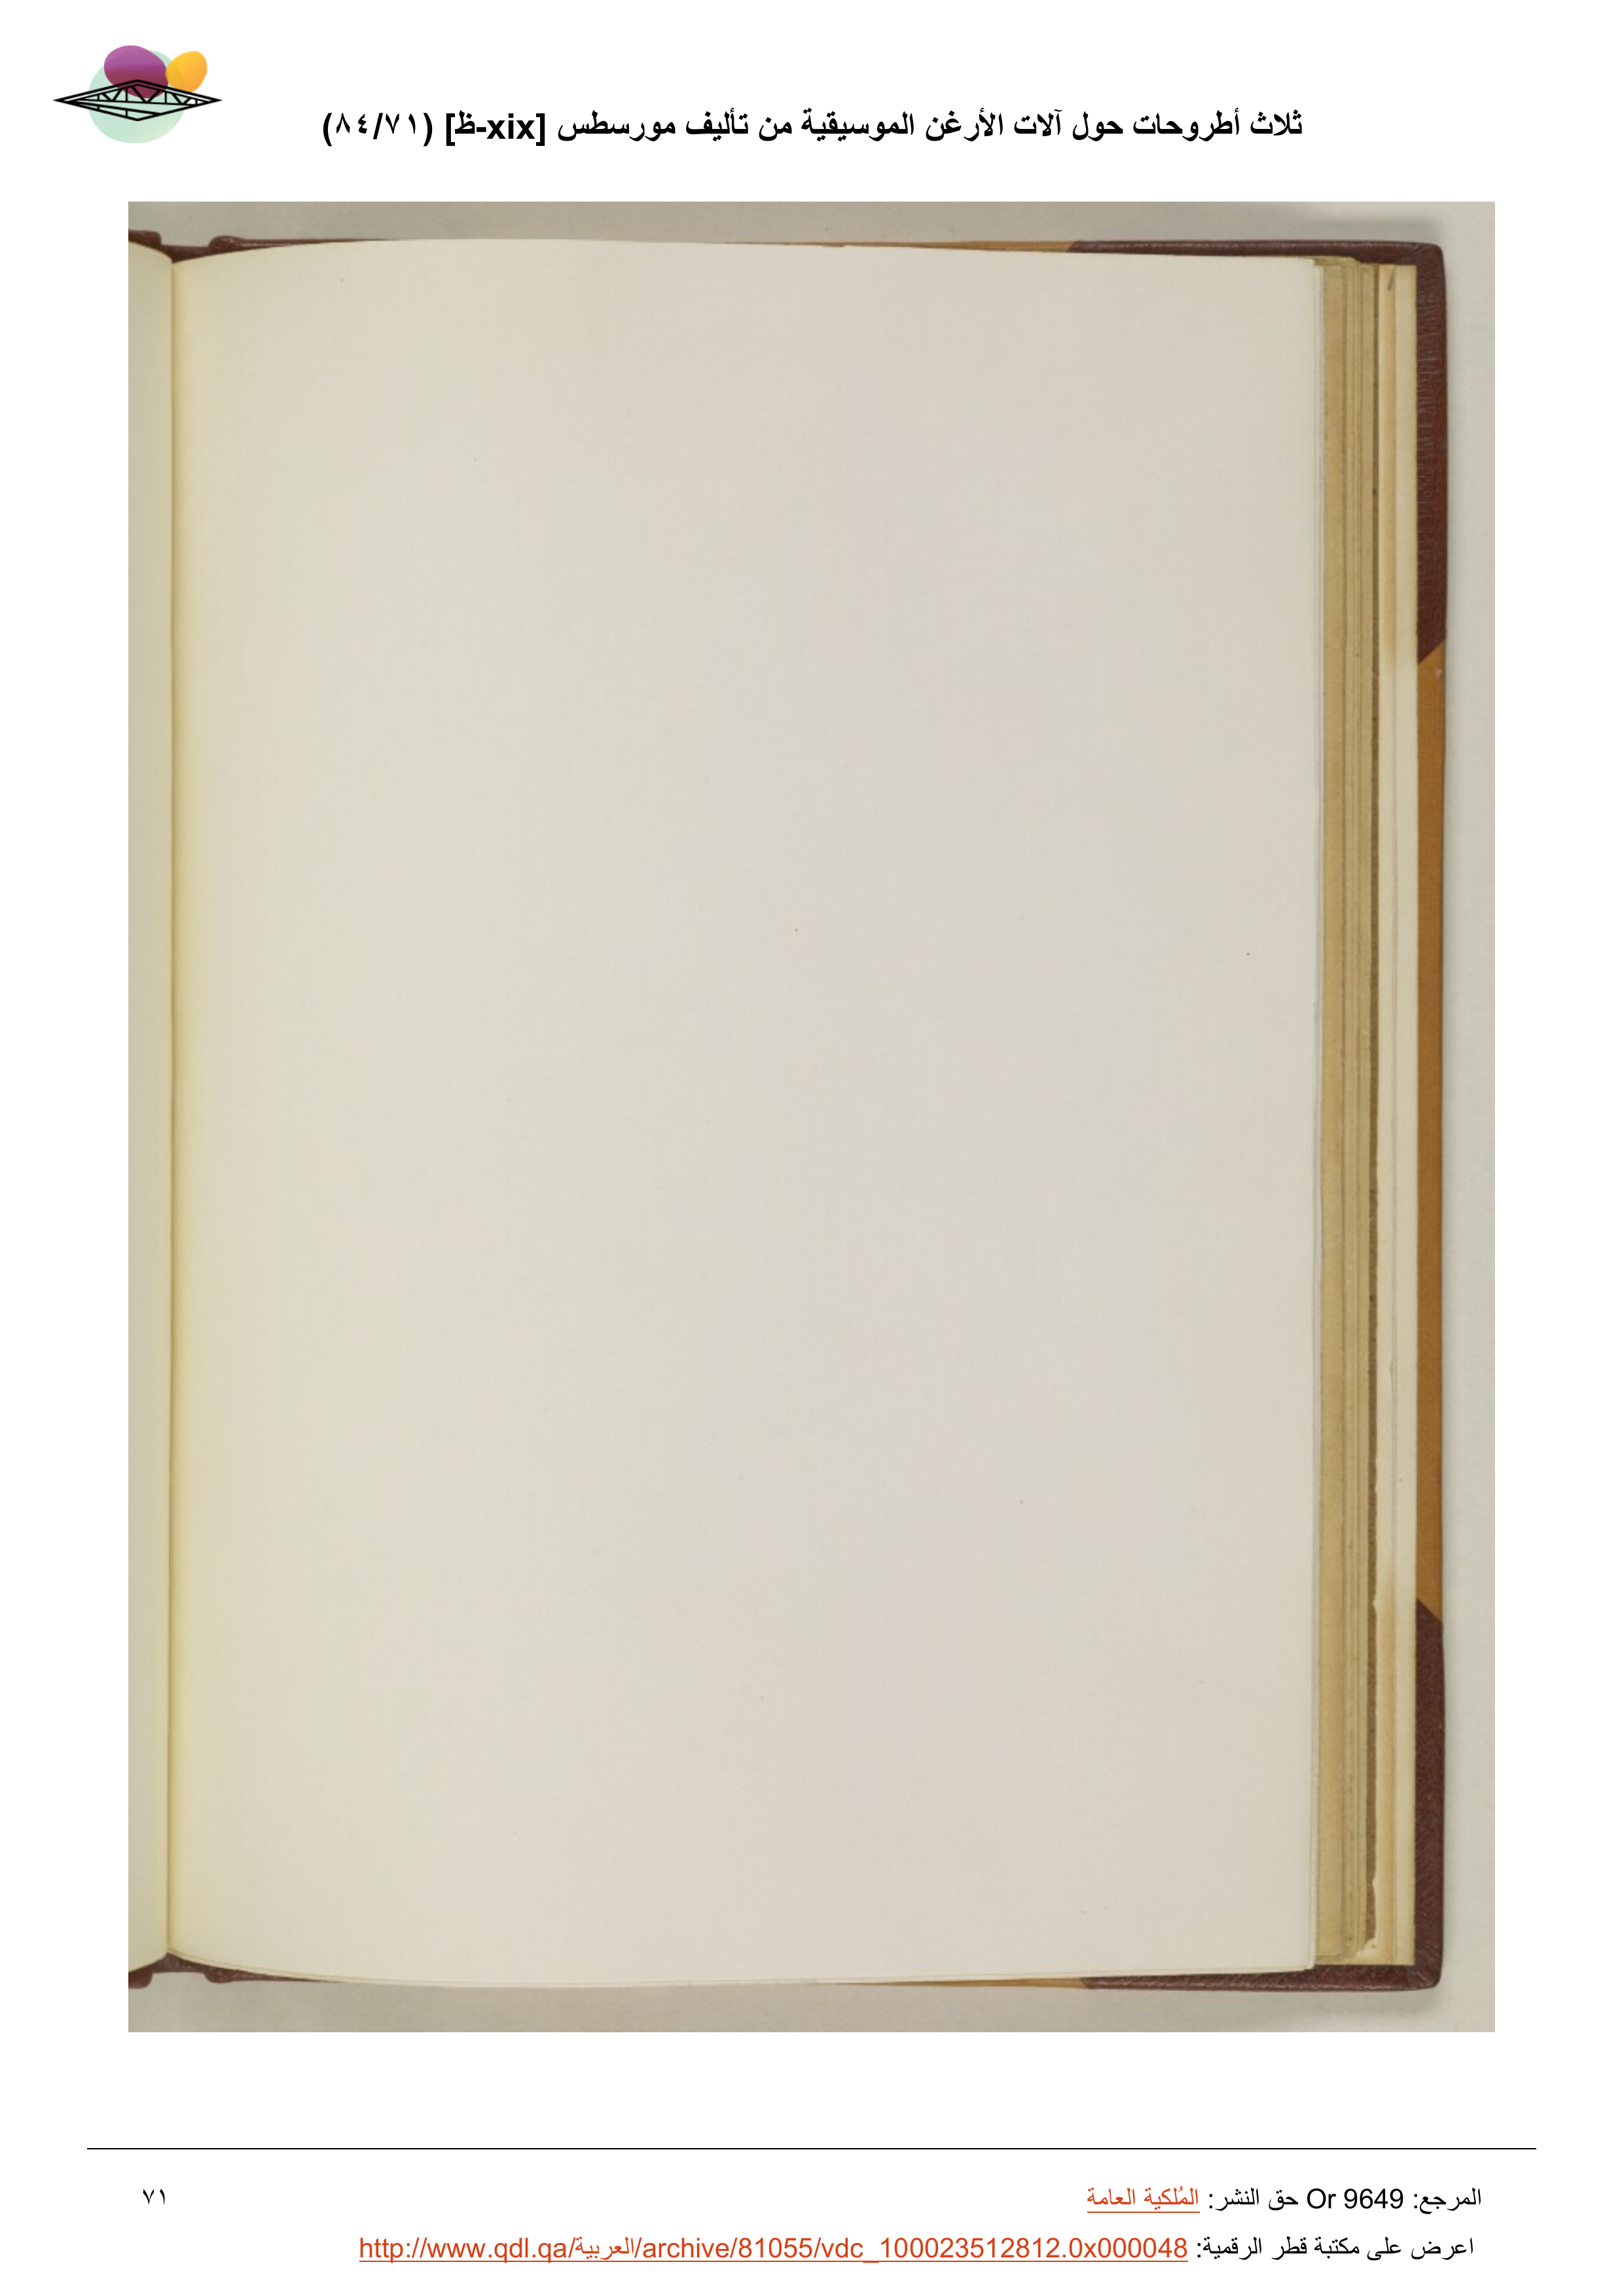 ثلاث أطروحات حول آلات الأرغن الموسيقية من تأليف مورسطس [xix-ظ] (٨٤/٧١)
المرجع: Or 9649 حق النشر: المُلكية العامة
٧١
اعرض على مكتبة قطر الرقمية: http://www.qdl.qa/العربية/archive/81055/vdc_100023512812.0x000048